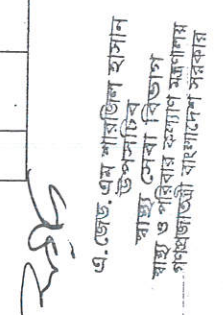 এ. জেড. এম শারজিল হাসান
উপসচিব
স্বাস্থ্য সেবা বিভাগ
স্বাস্থ্য ও পরিবার কল্যাণ মন্ত্রণালয়
গণপ্রজাতন্ত্রী বাংলাদেশ সরকার